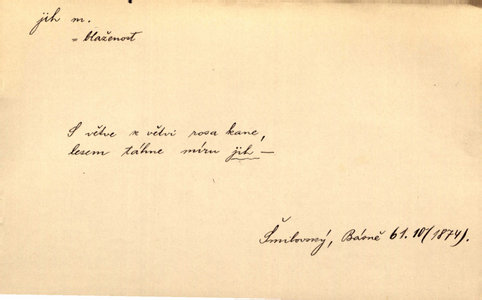 jih m.
= blaženost
S větve k větvi rosa kane,
lesem táhne míru jih —
Šmilovský, Básně 61. 10/1874).